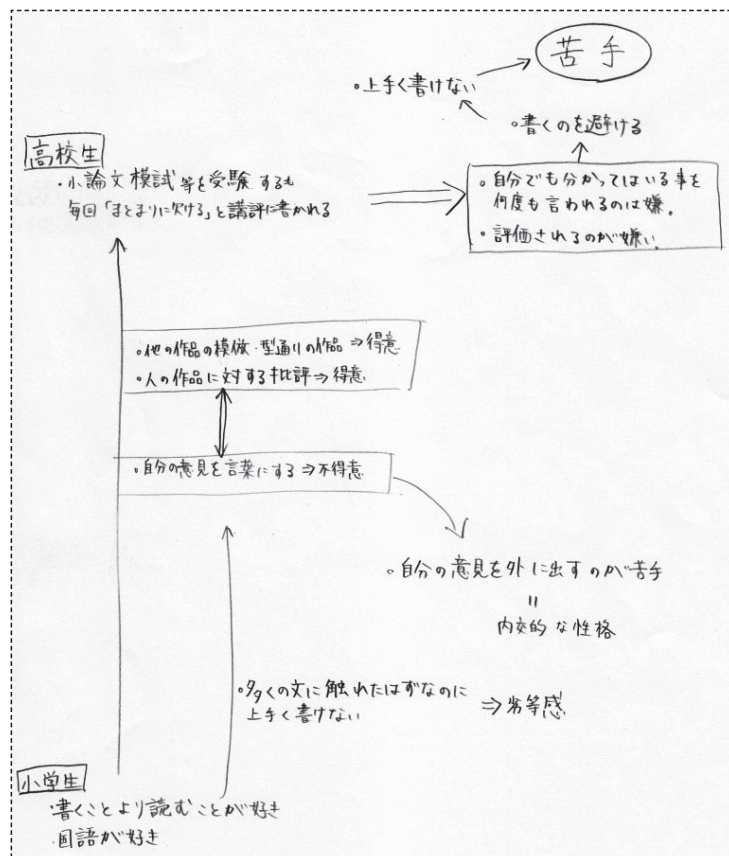 苦手
・上手く書けない
・書くのを避ける
高校生
・小論文模試等を受験するも
毎回「まとまりに欠ける」と講評に書かれる
・自分でも分かってはいる事を
何度も言われるのは嫌。
・評価されるのが嫌い。
・他の作品の模倣・型通りの作品⇒得意
・人の作品に対する批評⇒得意
・自分の意見を言葉にする⇒不得意
・自分の意見を外に出すのが苦手
〃
内交的な性格
・多くの文に触れたはずなのに
上手く書けない ⇒劣等感
小学生
・書くことより読むことが好き
・国語が好き